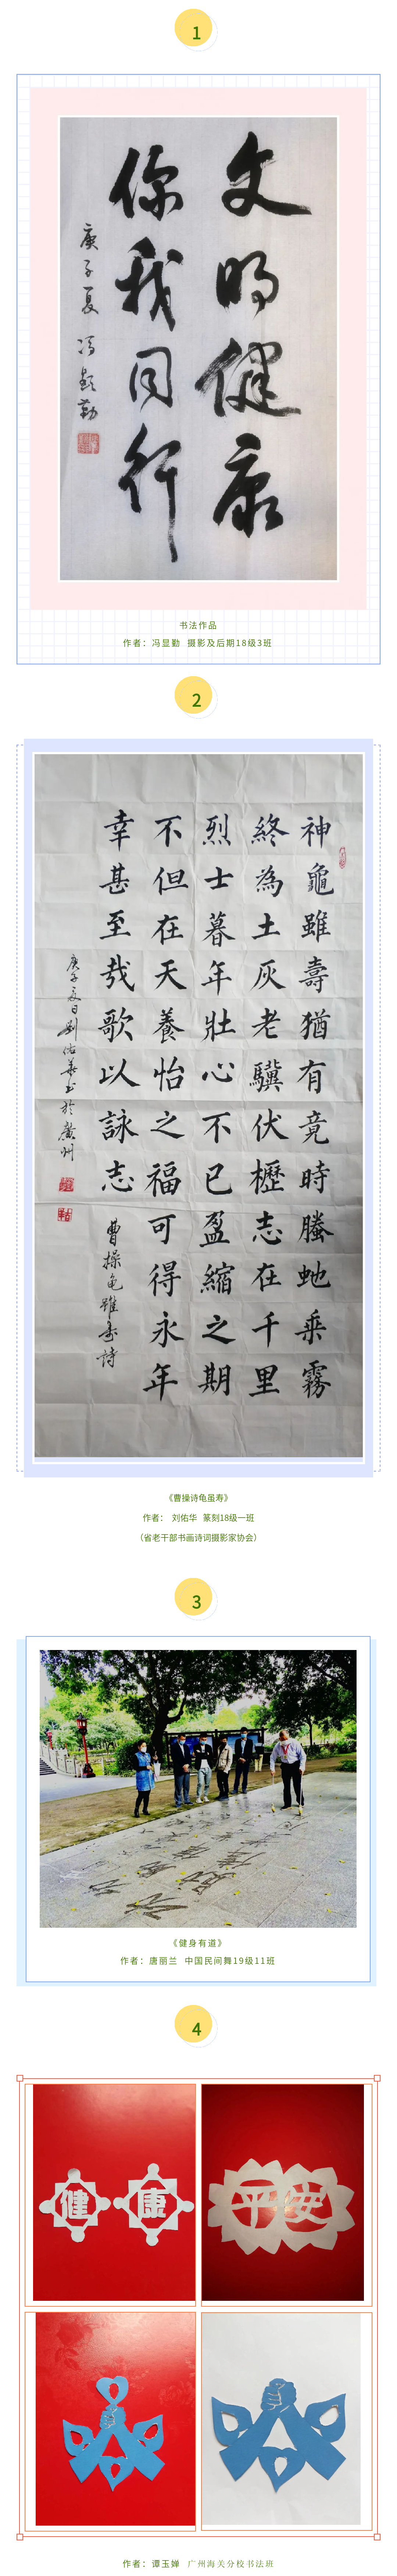 1
文明健康
你我同行
庚子夏冯显勤
书法作品
作者：冯显勤 摄影及后期18级3班
2
神龜雖壽猶有竟時騰虵乘霧
終為土灰老驥伏櫪志在千里
烈士暮年壯心不已盈縮之期
不但在天養怡之福可得永年
幸甚至哉歌以詠志
曹操龟雖寿詩
庚子夏日劉佑華书於廣州
《曹操诗龟虽寿》
作者： 刘佑华 篆刻18级一班
（省老干部书画诗词摄影家协会）
3
《健身有道》
作者：唐丽兰 中国民间舞19级11班
4
健康
平安
作者：谭玉婵 广州海关分校书法班